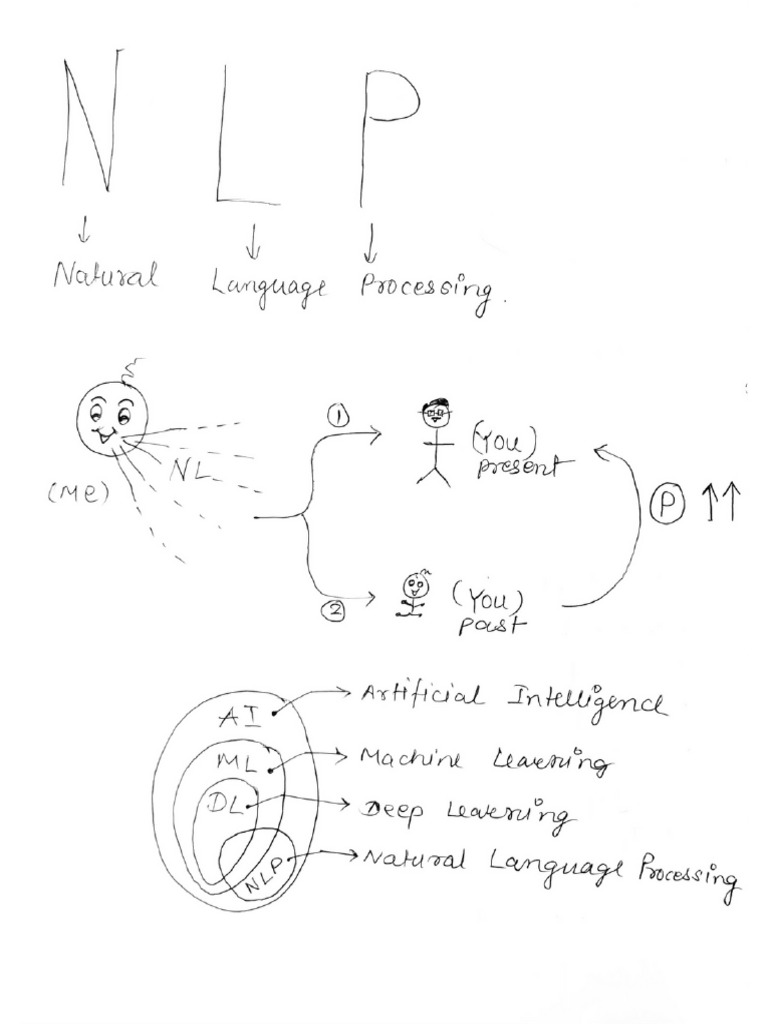 N L P
Natural Language Processing.
(Me)
NL
1
(You)
present
P
2
(You)
past
AI Artificial Intelligence
ML Machine Learning
DL Deep Learning
NLP Natural Language Processing